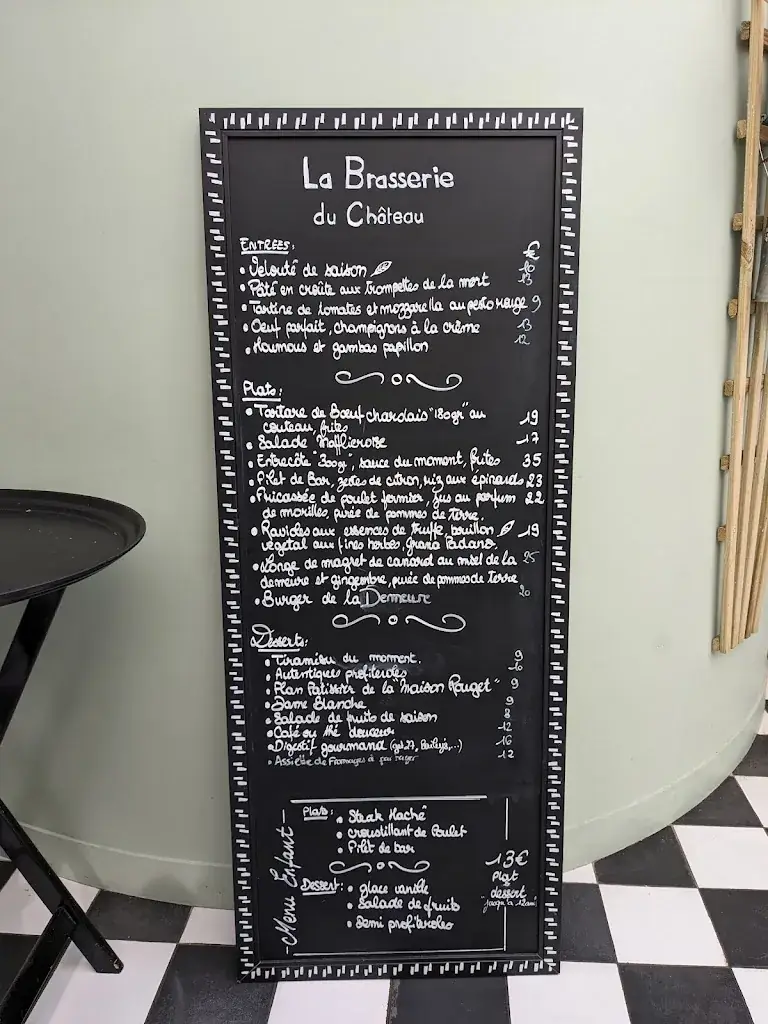 La Brasserie
du Château
ENTREES: €
• Velouté de saison 10
• Pâté en croûte aux trompettes de la mort 13
• Tartine de tomates et mozzarella au pesto rouge 9
• Oeuf parfait, champignons à la crème 13
• Houmous et gambas papillon 12
Plats:
• Tartare de Bœuf charolais "180gr" au 19
couteau, frites
• Salade Mafflieroise 17
• Entrecôte "300gr", sauce du moment, frites 35
• Filet de Bar, zestes de citron, riz aux épinards 23
• Fricassée de poulet fermier, jus au parfum 22
de morilles, purée de pommes de terre.
• Ravioles aux essences de truffe, bouillon 19
végétal aux fines herbes, Grana Padano.
• Longe de magret de canard au miel de la 25
demeure et gingembre, purée de pommes de terre
• Burger de la Demeure 20
Desserts:
• Tiramisu du moment. 9
• Autentiques profiteroles 10
• Flan Patissier de la "Maison Rouget" 9
• Dame Blanche 9
• Salade de fruits de saison 8
• Café ou thé douceur 12
• Digestif gourmand (get 27, Baileys,...) 16
• Assiette de Fromages à partager 12
- Menu Enfant -
Plats: • Steak Haché
• croustillant de Poulet
• Filet de bar
Dessert: • glace vanille
• Salade de fruits
• Demi profiteroles
13€
Plat
&
dessert
"jusqu'à 12ans"